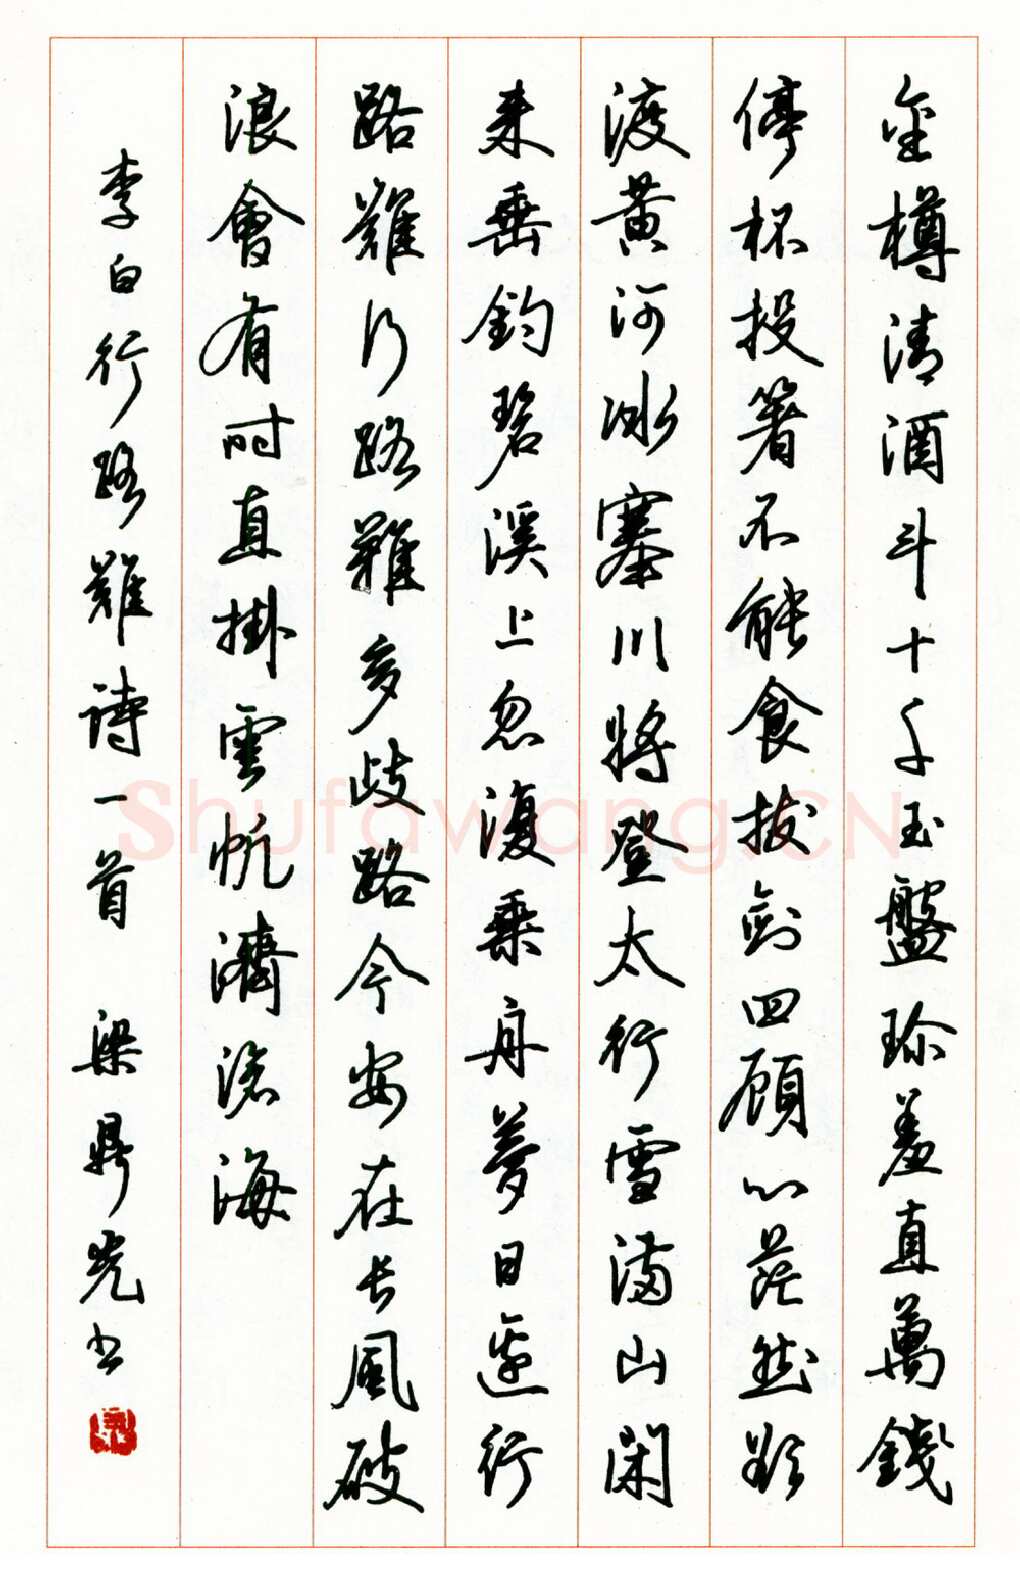 金樽清酒斗十千玉盤珍羞直萬錢
停杯投箸不能食拔劍四顧心茫然欲
渡黃河冰塞川將登太行雪滿山閑
來垂釣碧溪上忽復乘舟夢日邊行
路難行路難多歧路今安在長風破
浪會有時直掛雲帆濟滄海
李白行路難詩一首 梁鼎光书
Shufawang.CN